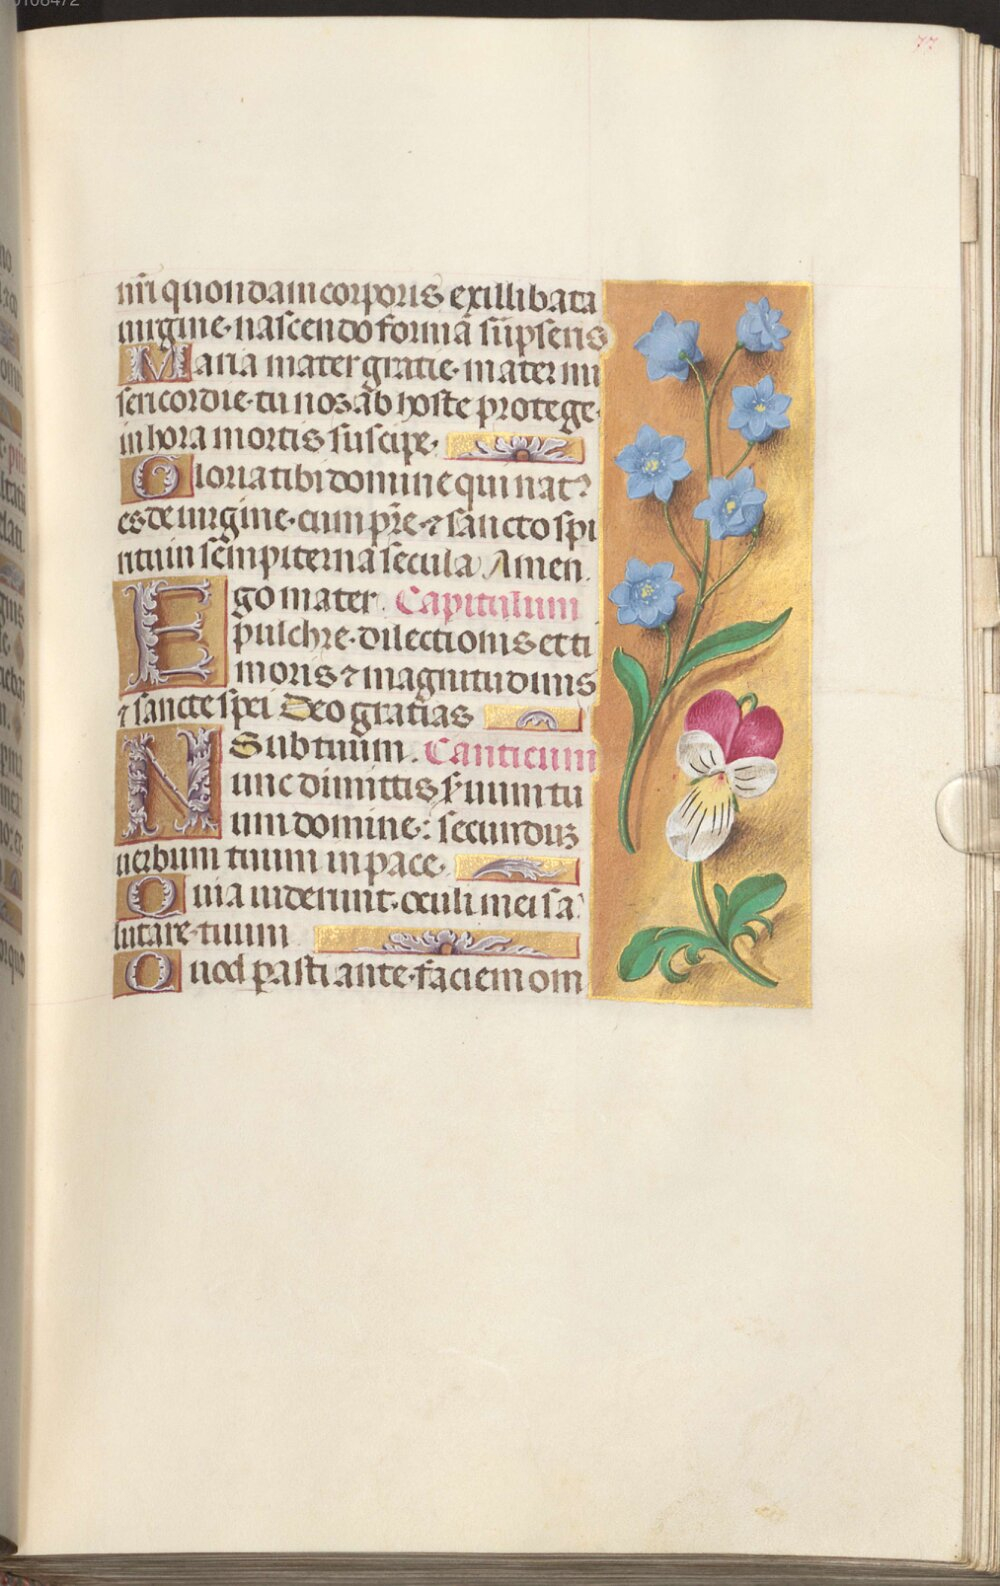 0108472
77
nr̄i quondam corporis ex illibata
uirgine·nascendo formā sūpseris
Maria mater gratie·mater mi
sericordie·tu nos ab hoste protege·
in hora mortis suscipe·
Gloria tibi domine qui nat⁹
es de uirgine·cum pr̄e·⁊ sancto spi
ritu in sēmpiterna secula Amen.
Ego mater. Capitulum
pulchre·dilectionis et ti
moris ⁊ magnitudinis
⁊ sancte spei Deo gratias
Sub tuum. Canticum
Nunc dimittis ẜuum tu
um domine: secunduꝫ
uerbum tuum in pace·
Quia uiderunt·oculi mei sa
lutare·tuum
Quod ꝑasti ante·faciem om